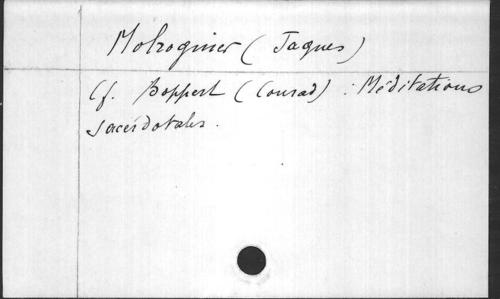 Molroguier (Jaques)
Cf. Boppert (Conrad) : Méditations
sacerdotales.